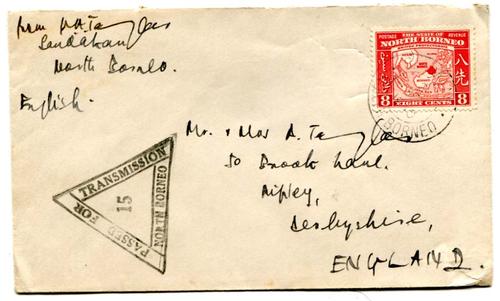 from
Sandakan
North Borneo.
English.
POSTAGE REVENUE
THE STATE OF
NORTH BORNEO
8 八先 8
EIGHT CENTS
BORNEO
Mr. + Mrs A.
50 Brook Lane.
Ripley,
Derbyshire,
ENGLAND.
PASSED FOR TRANSMISSION
15
NORTH BORNEO